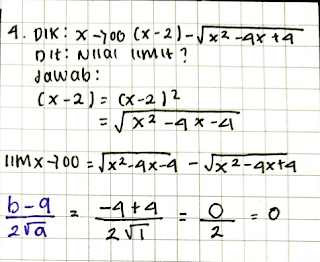 4. DIK: x→00 (x-2)-√x²-4x+4
Dit: Nilai limit?
Jawab:
(x-2) = (x-2)²
= √x²-4x-4
lim x→00 = √x²-4x-4 - √x²-4x+4
b-q/2√a = -4+4/2√1 = 0/2 = 0